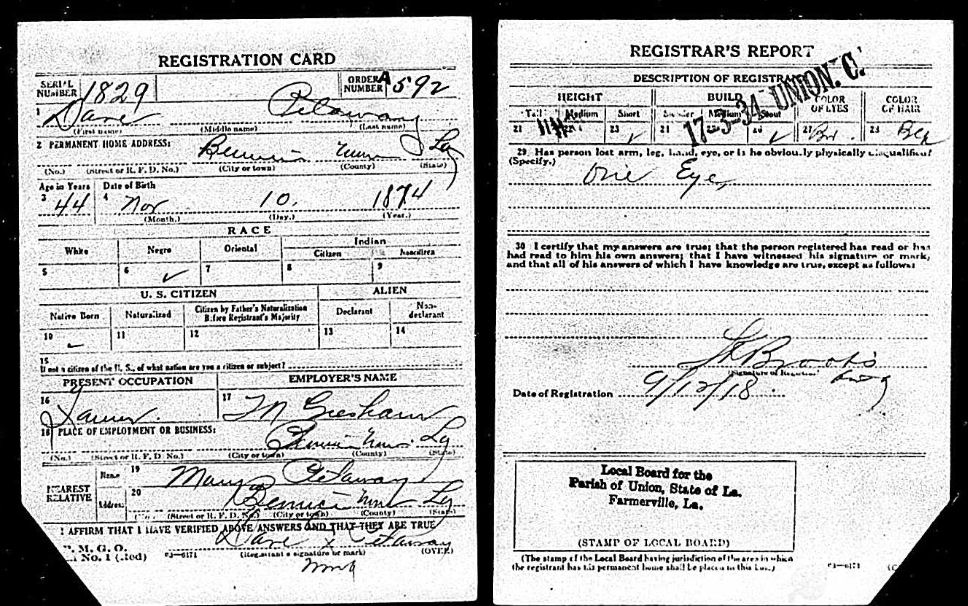 REGISTRATION CARD
SERIAL NUMBER 1829 ORDER NUMBER A 592
1 Dave Petaway
(First name) (Middle name) (Last name)
2 PERMANENT HOME ADDRESS: Bernice Union La
(No.) (Street or R. F. D. No.) (City or town) (County) (State)
Age in Years Date of Birth
3 44 4 Nov 10, 1874
(Month.) (Day.) (Year.)
RACE
White Negro Oriental Indian
Citizen Noncitizen
5 6 ✓ 7 8 9
U. S. CITIZEN ALIEN
Native Born Naturalized Citizen by Father's Naturalization Before Registrant's Majority Declarant Non-declarant
10 ✓ 11 12 13 14
15 If not a citizen of the U. S., of what nation are you a citizen or subject?
PRESENT OCCUPATION EMPLOYER'S NAME
16 17 Gresham
18 PLACE OF EMPLOYMENT OR BUSINESS:
Bernice Union La
(No.) (Street or R. F. D. No.) (City or town) (County) (State)
NEAREST RELATIVE Name 19 Mary Petaway
Address 20 Bernice Union La
(No.) (Street or R. F. D. No.) (City or town) (County) (State)
I AFFIRM THAT I HAVE VERIFIED ABOVE ANSWERS AND THAT THEY ARE TRUE
P. M. G. O.
Form No. 1 (Red) 03-6171 Dave x Petaway
(Registrant's signature or mark) (OVER)
mark
REGISTRAR'S REPORT
17-3-34 UNION. C.
DESCRIPTION OF REGISTRANT
HEIGHT BUILD COLOR OF EYES COLOR OF HAIR
Tall Medium Short Slender Medium Stout
21 22 23 ✓ 24 25 26 ✓ 27 Br 28 Blk
29 Has person lost arm, leg, hand, eye, or is he obviously physically disqualified?
(Specify.) One Eye
30 I certify that my answers are true; that the person registered has read or has
had read to him his own answers; that I have witnessed his signature or mark,
and that all of his answers of which I have knowledge are true, except as follows:
Brooks
(Signature of Registrar)
Date of Registration 9/12/18
Local Board for the
Parish of Union, State of La.
Farmerville, La.
(STAMP OF LOCAL BOARD)
(The stamp of the Local Board having jurisdiction of the area in which
the registrant has his permanent home shall be placed in this box.) 03-6171